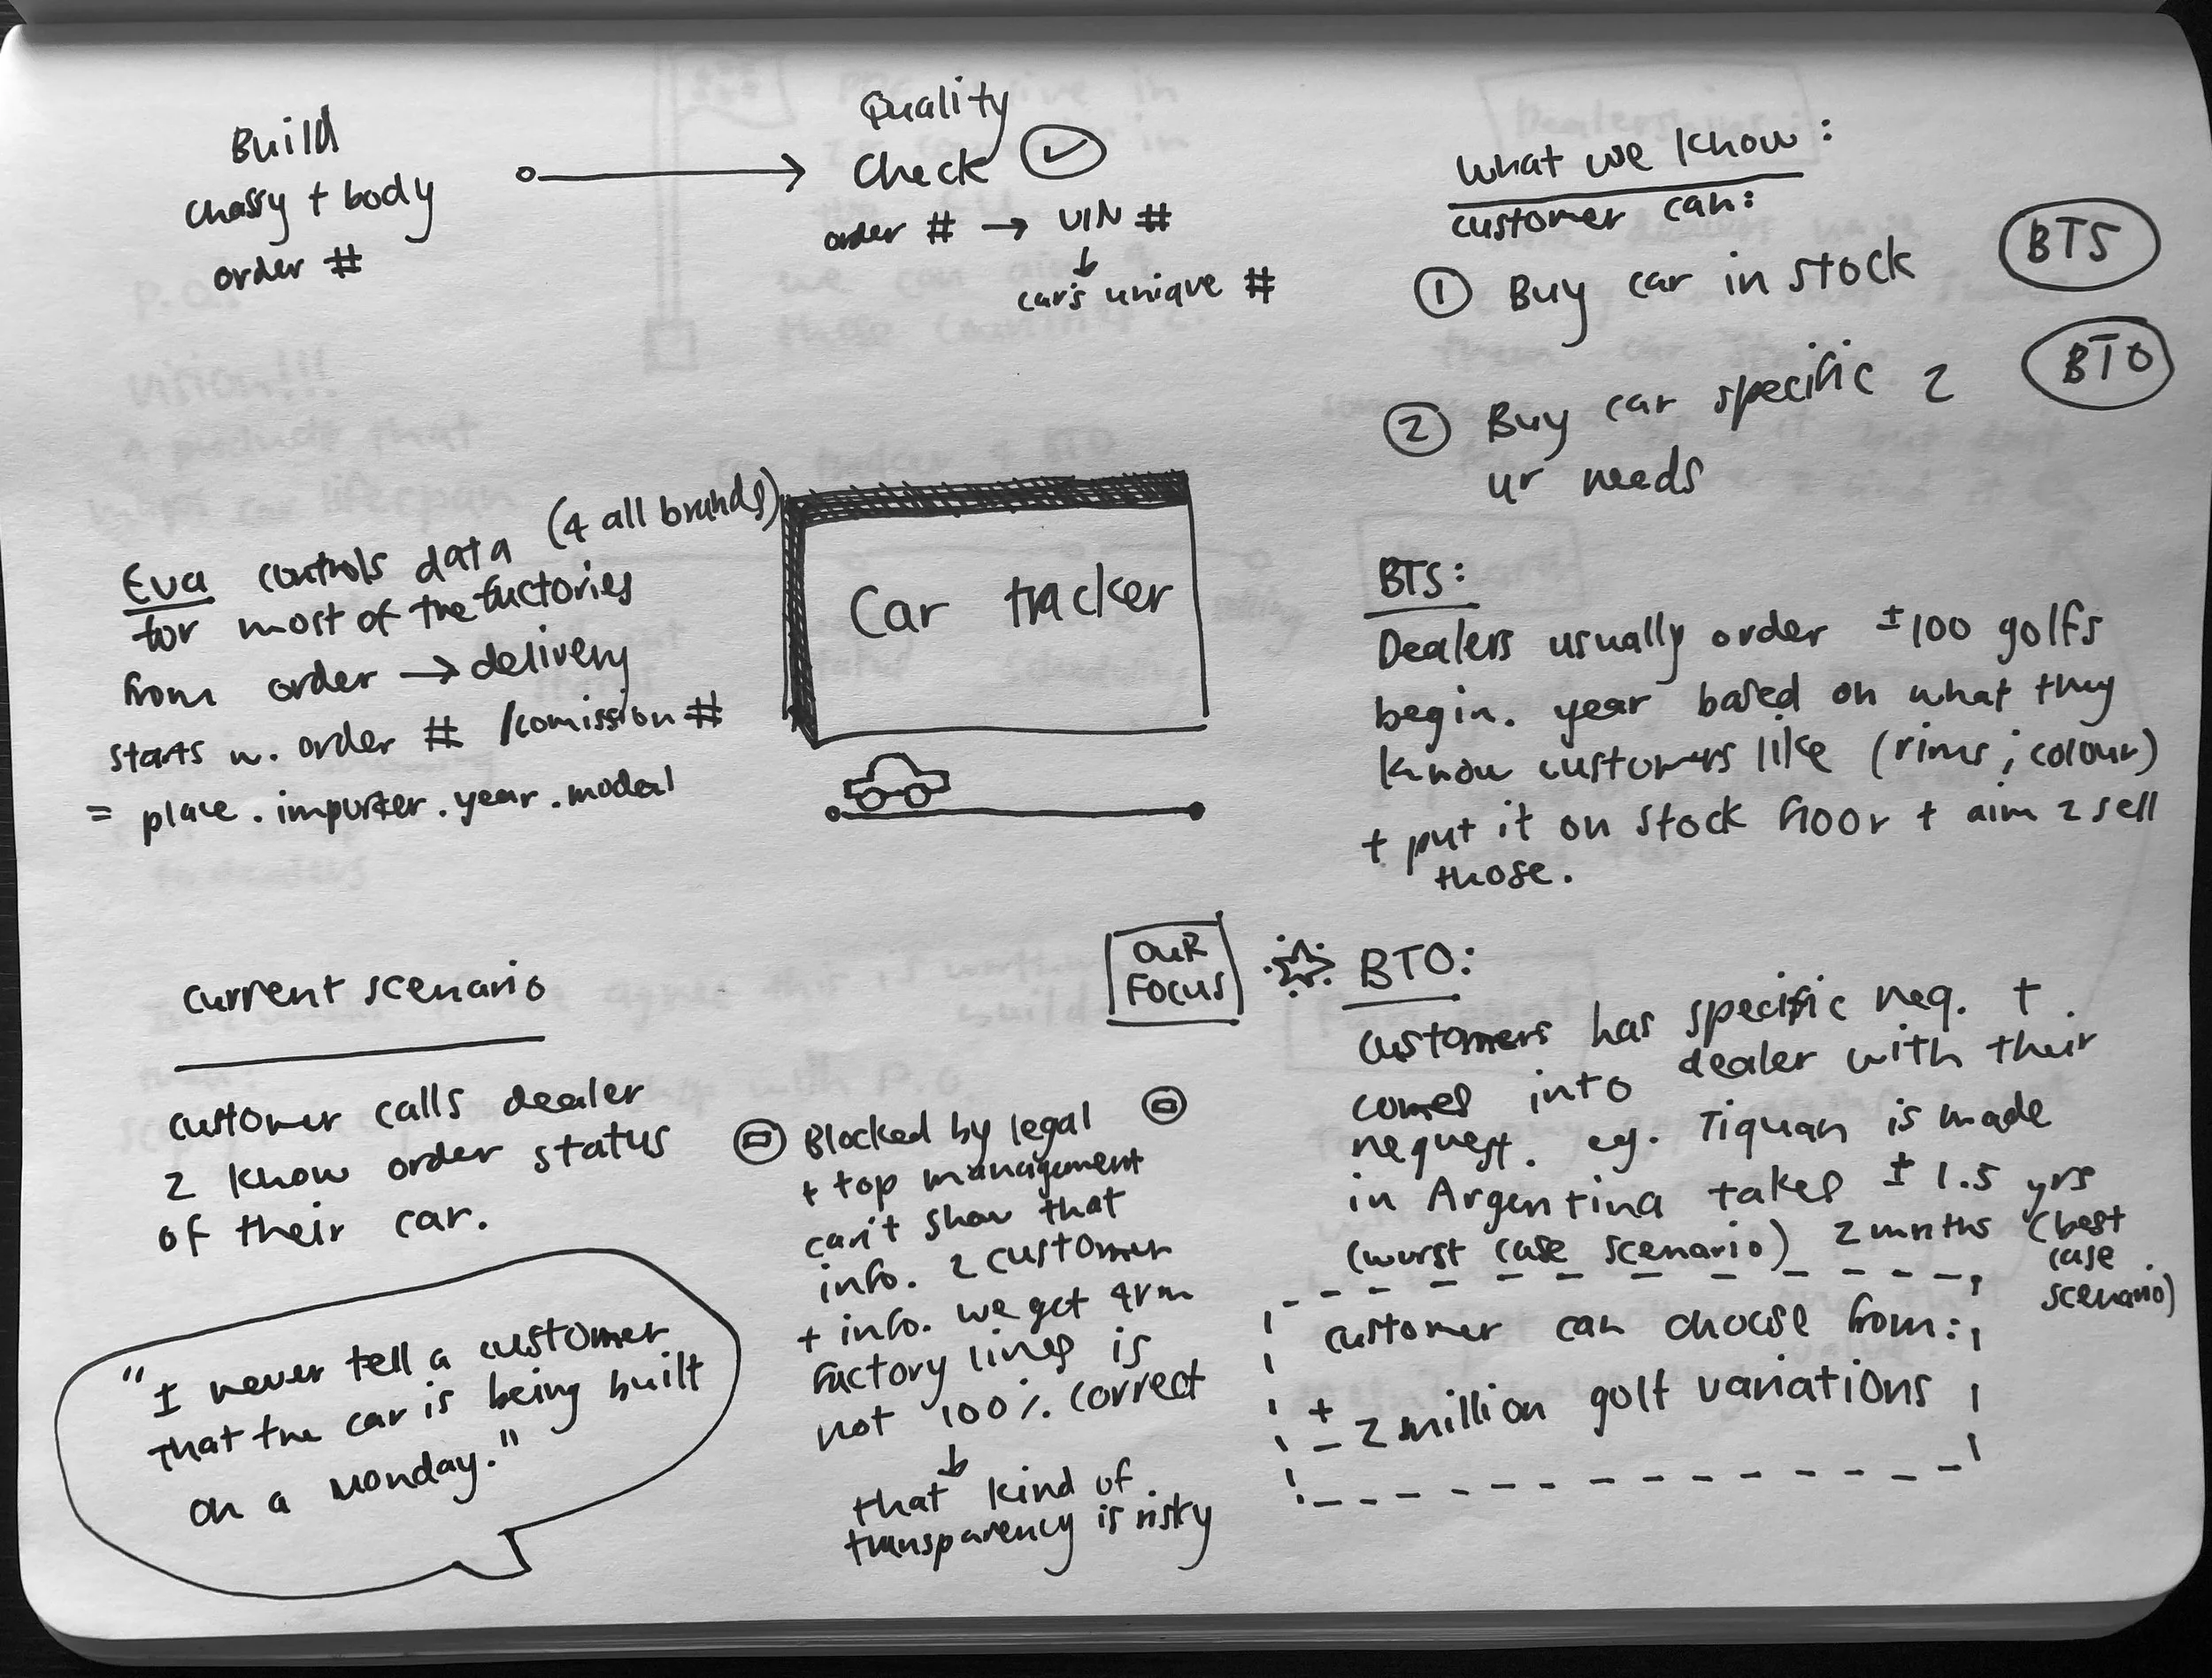 Build
chassy + body
order #
Quality
Check
order # → VIN #
↓
car's unique #
what we know:
customer can:
① Buy car in stock
BTS
② Buy car specific 2
ur needs
BTO
Eva controls data (4 all brands)
for most of the factories
from order → delivery
starts w. order # /comission #
= place . importer . year . model
Car tracker
BTS:
Dealers usually order ± 100 golfs
begin. year based on what they
know customers like (rims ; colour)
+ put it on stock floor + aim 2 sell
those.
current scenario
customer calls dealer
2 know order status
of their car.
"I never tell a customer
that the car is being built
on a Monday."
Blocked by legal
+ top management
can't show that
info. 2 customer
+ info. we get 4rm
factory lines is
not 100% correct
↓
that kind of
transparency is risky
OUR
FOCUS
BTO:
customers has specific req. +
comes into dealer with their
request. eg. Tiquan is made
in Argentina takes ± 1.5 yrs
(worst case scenario) 2 mnths (best
case
scenario)
customer can choose from:
± 2 million golf variations